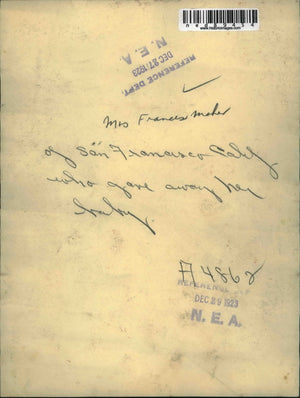 REFERENCE DEPT.
DEC 27 1923
N. E. A.
Mrs Frances Maher
of San Francisco Calif
who gave away her
baby.
A 4862
REFERENCE
DEC 29 1923
N. E. A.